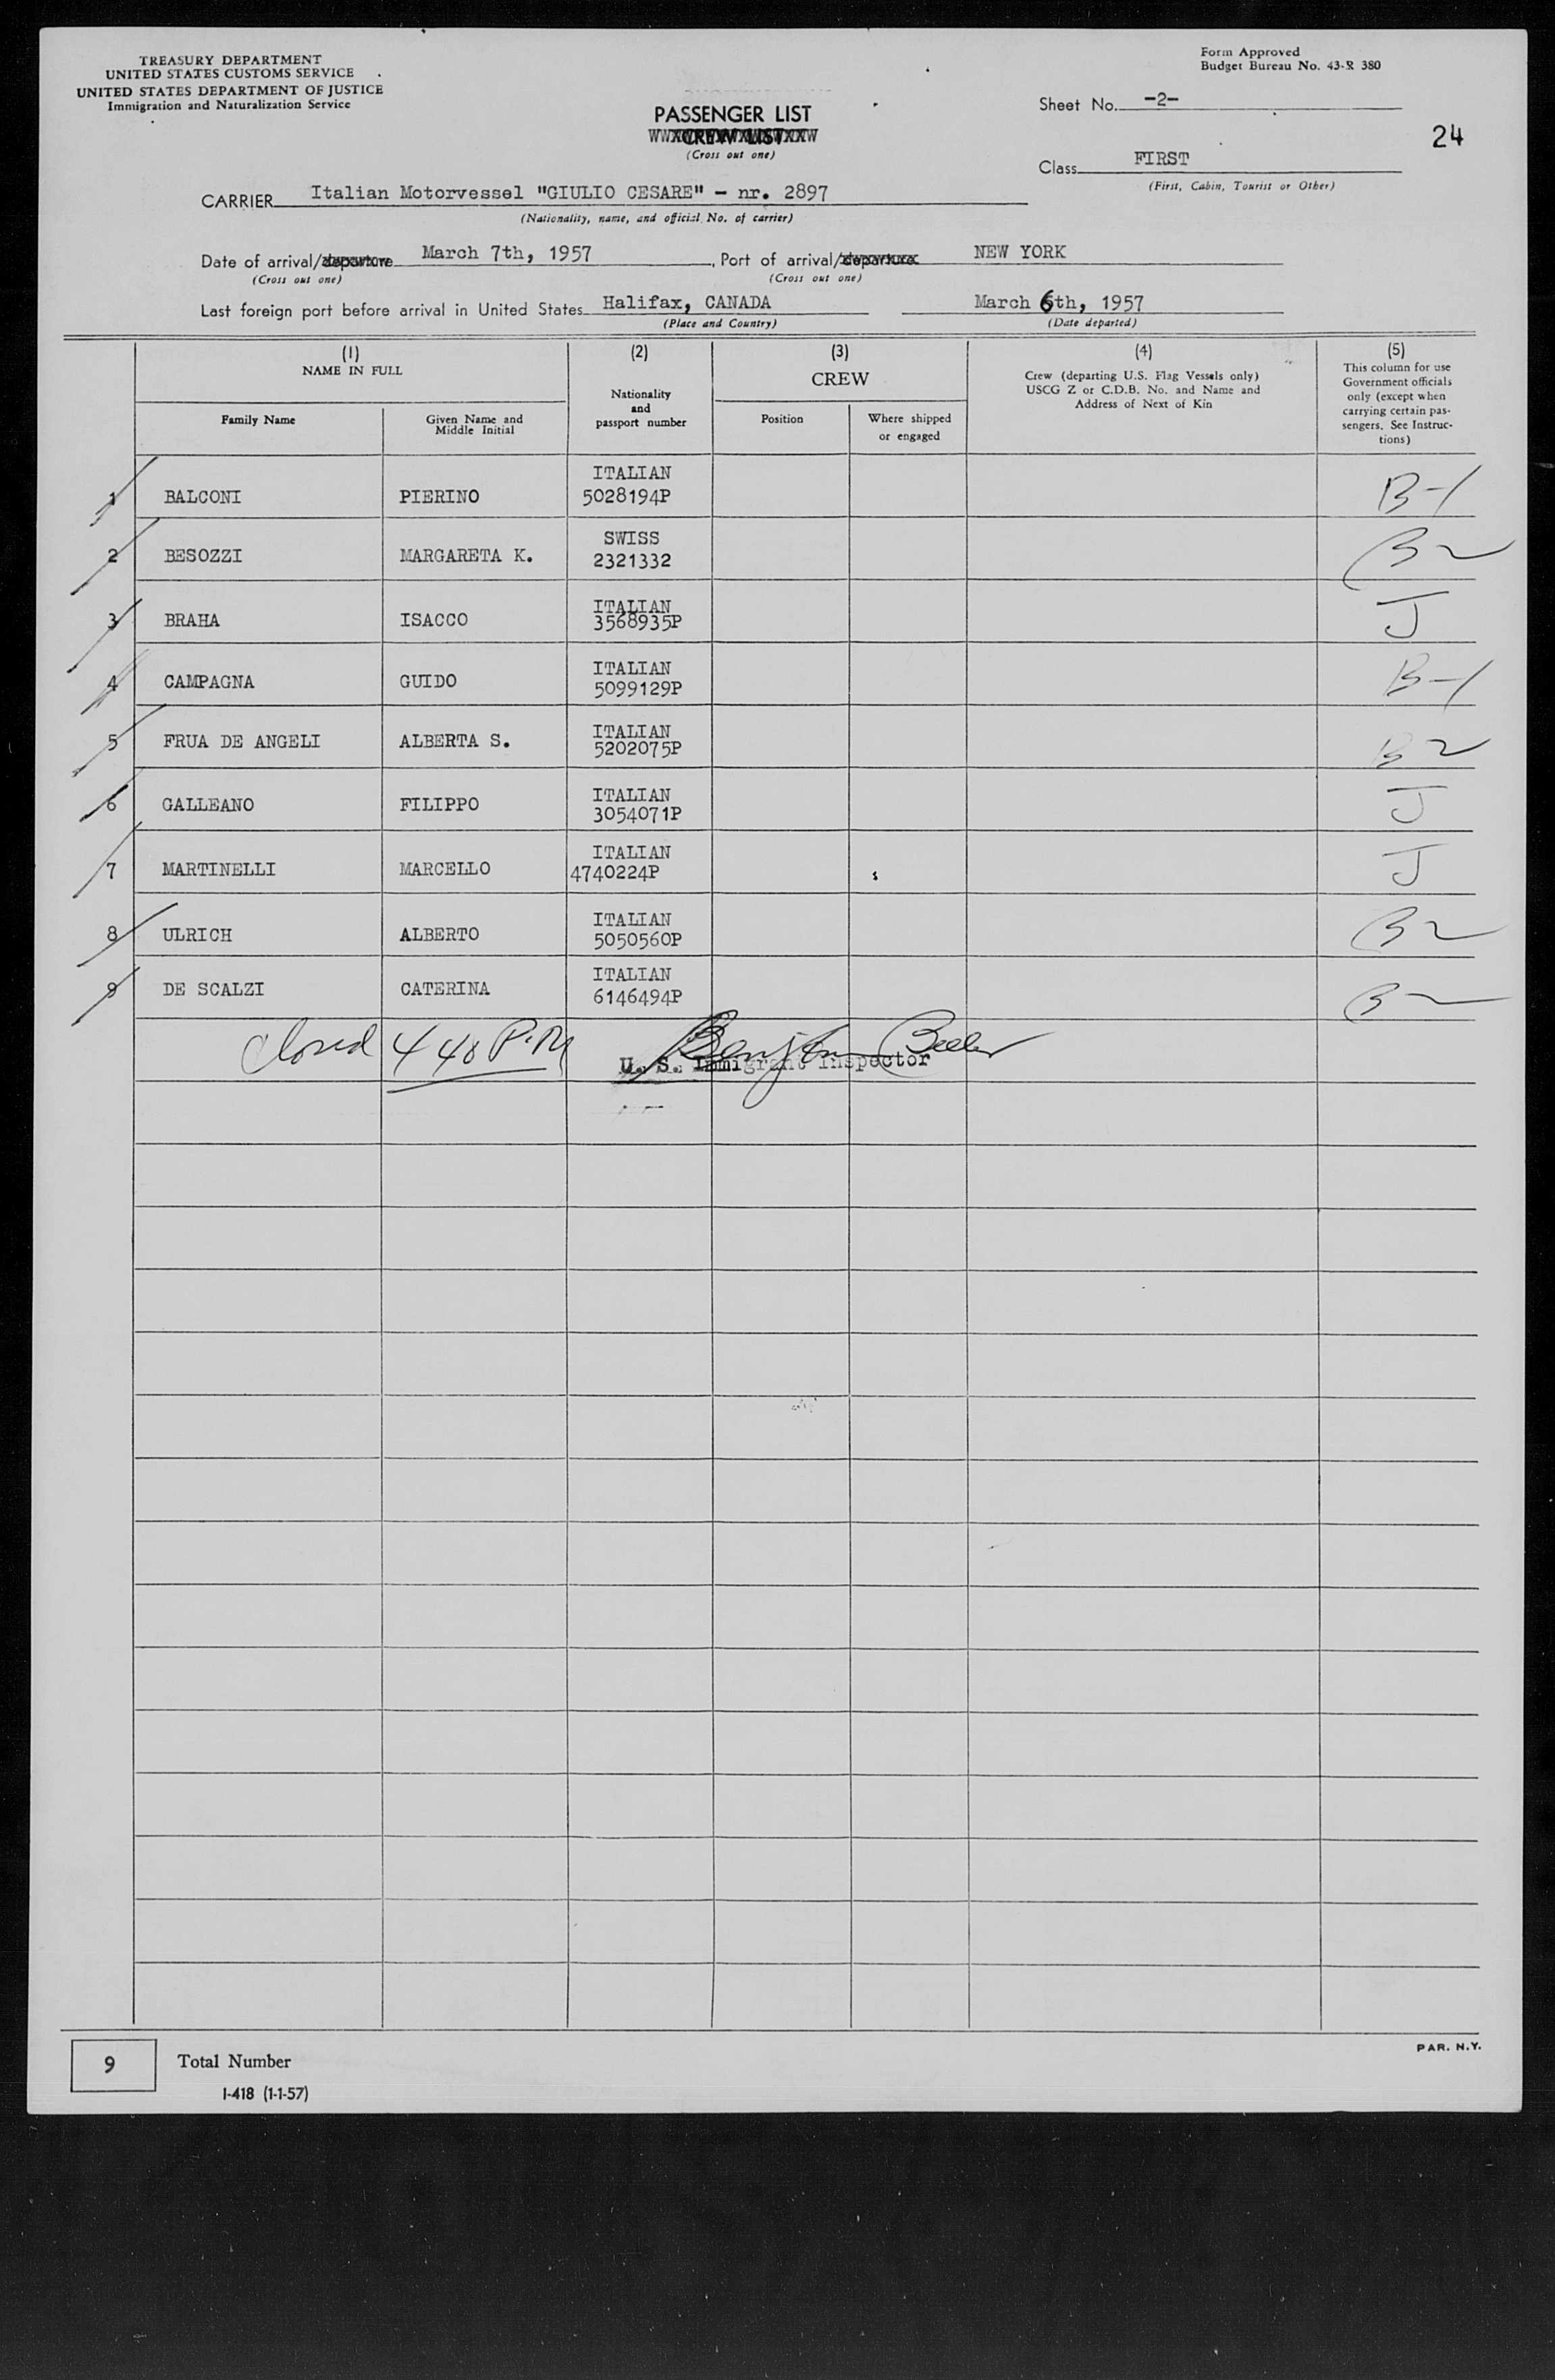 TREASURY DEPARTMENT
UNITED STATES CUSTOMS SERVICE
UNITED STATES DEPARTMENT OF JUSTICE
Immigration and Naturalization Service
Form Approved
Budget Bureau No. 43-R 380
PASSENGER LIST
CREW LIST
(Cross out one)
Sheet No. -2-
24
Class FIRST
(First, Cabin, Tourist or Other)
CARRIER Italian Motorvessel "GIULIO CESARE" - nr. 2897
(Nationality, name, and official No. of carrier)
Date of arrival/departure March 7th, 1957, Port of arrival/departure NEW YORK
(Cross out one) (Cross out one)
Last foreign port before arrival in United States Halifax, CANADA March 6th, 1957
(Place and Country) (Date departed)
(1) (2) (3) (4) (5)
NAME IN FULL
Family Name
Given Name and
Middle Initial
Nationality
and
passport number
CREW
Position
Where shipped
or engaged
Crew (departing U.S. Flag Vessels only)
USCG Z or C.D.B. No. and Name and
Address of Next of Kin
This column for use
Government officials
only (except when
carrying certain pas-
sengers. See Instruc-
tions)
ITALIAN
1 BALCONI PIERINO 5028194P B-1
SWISS
2 BESOZZI MARGARETA K. 2321332 B2
ITALIAN
3 BRAHA ISACCO 3568935P J
ITALIAN
4 CAMPAGNA GUIDO 5099129P B-1
ITALIAN
5 FRUA DE ANGELI ALBERTA S. 5202075P B2
ITALIAN
6 GALLEANO FILIPPO 3054071P J
ITALIAN
7 MARTINELLI MARCELLO 4740224P J
ITALIAN
8 ULRICH ALBERTO 5050560P B2
ITALIAN
9 DE SCALZI CATERINA 6146494P B2
Closed 4 40 P.M
U. S. Immigrant Inspector
9 Total Number
I-418 (1-1-57)
PAR. N.Y.